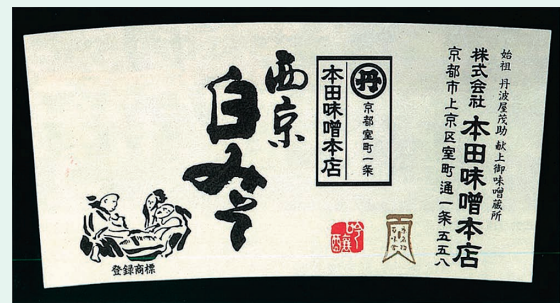 始祖 丹波屋茂助 献上御味噌蔵所
株式会社 本田味噌本店
京都市上京区室町通一条五五八
丹
京都室町一条
本田味噌本店
西京
白みそ
吟醸
登録商標